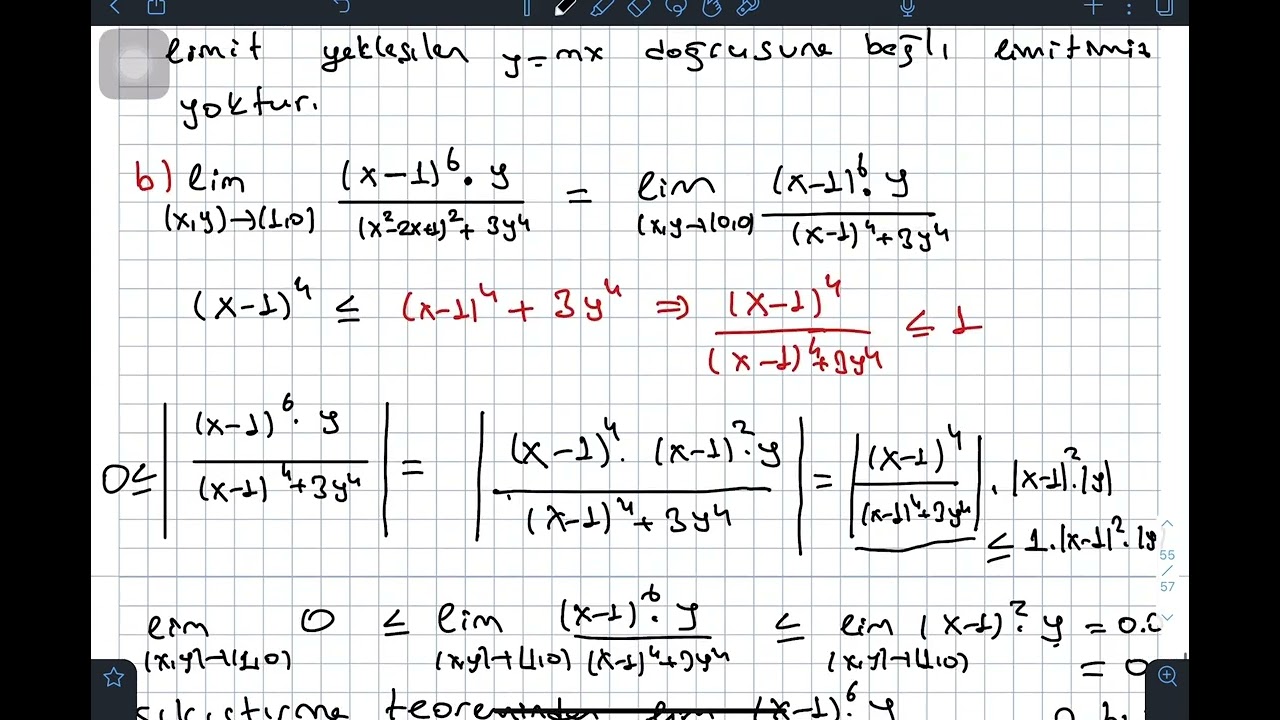 limit yaklaşılan y=mx doğrusuna bağlı limitimiz
yoktur.
b) lim (x,y)→(1,0) (x-1)^6 · y / (x^2-2x+1)^2 + 3y^4 = lim (x,y→(0,0) (x-1)^6 · y / (x-1)^4 + 3y^4
(x-1)^4 ≤ (x-1)^4 + 3y^4 ⇒ (x-1)^4 / (x-1)^4 + 3y^4 ≤ 1
0 ≤ | (x-1)^6 · y / (x-1)^4 + 3y^4 | = | (x-1)^4 · (x-1)^2 · y / (x-1)^4 + 3y^4 | = | (x-1)^4 / (x-1)^4 + 3y^4 | · |x-1|^2 · |y|
≤ 1 · |x-1|^2 · |y
55
/
57
lim (x,y)→(1,0) 0 ≤ lim (x,y)→(1,0) (x-1)^6 · y / (x-1)^4 + 3y^4 ≤ lim (x,y)→(1,0) (x-1)^2 · y = 0.
= 0
sıkıştırma lim (x-1)^6 y